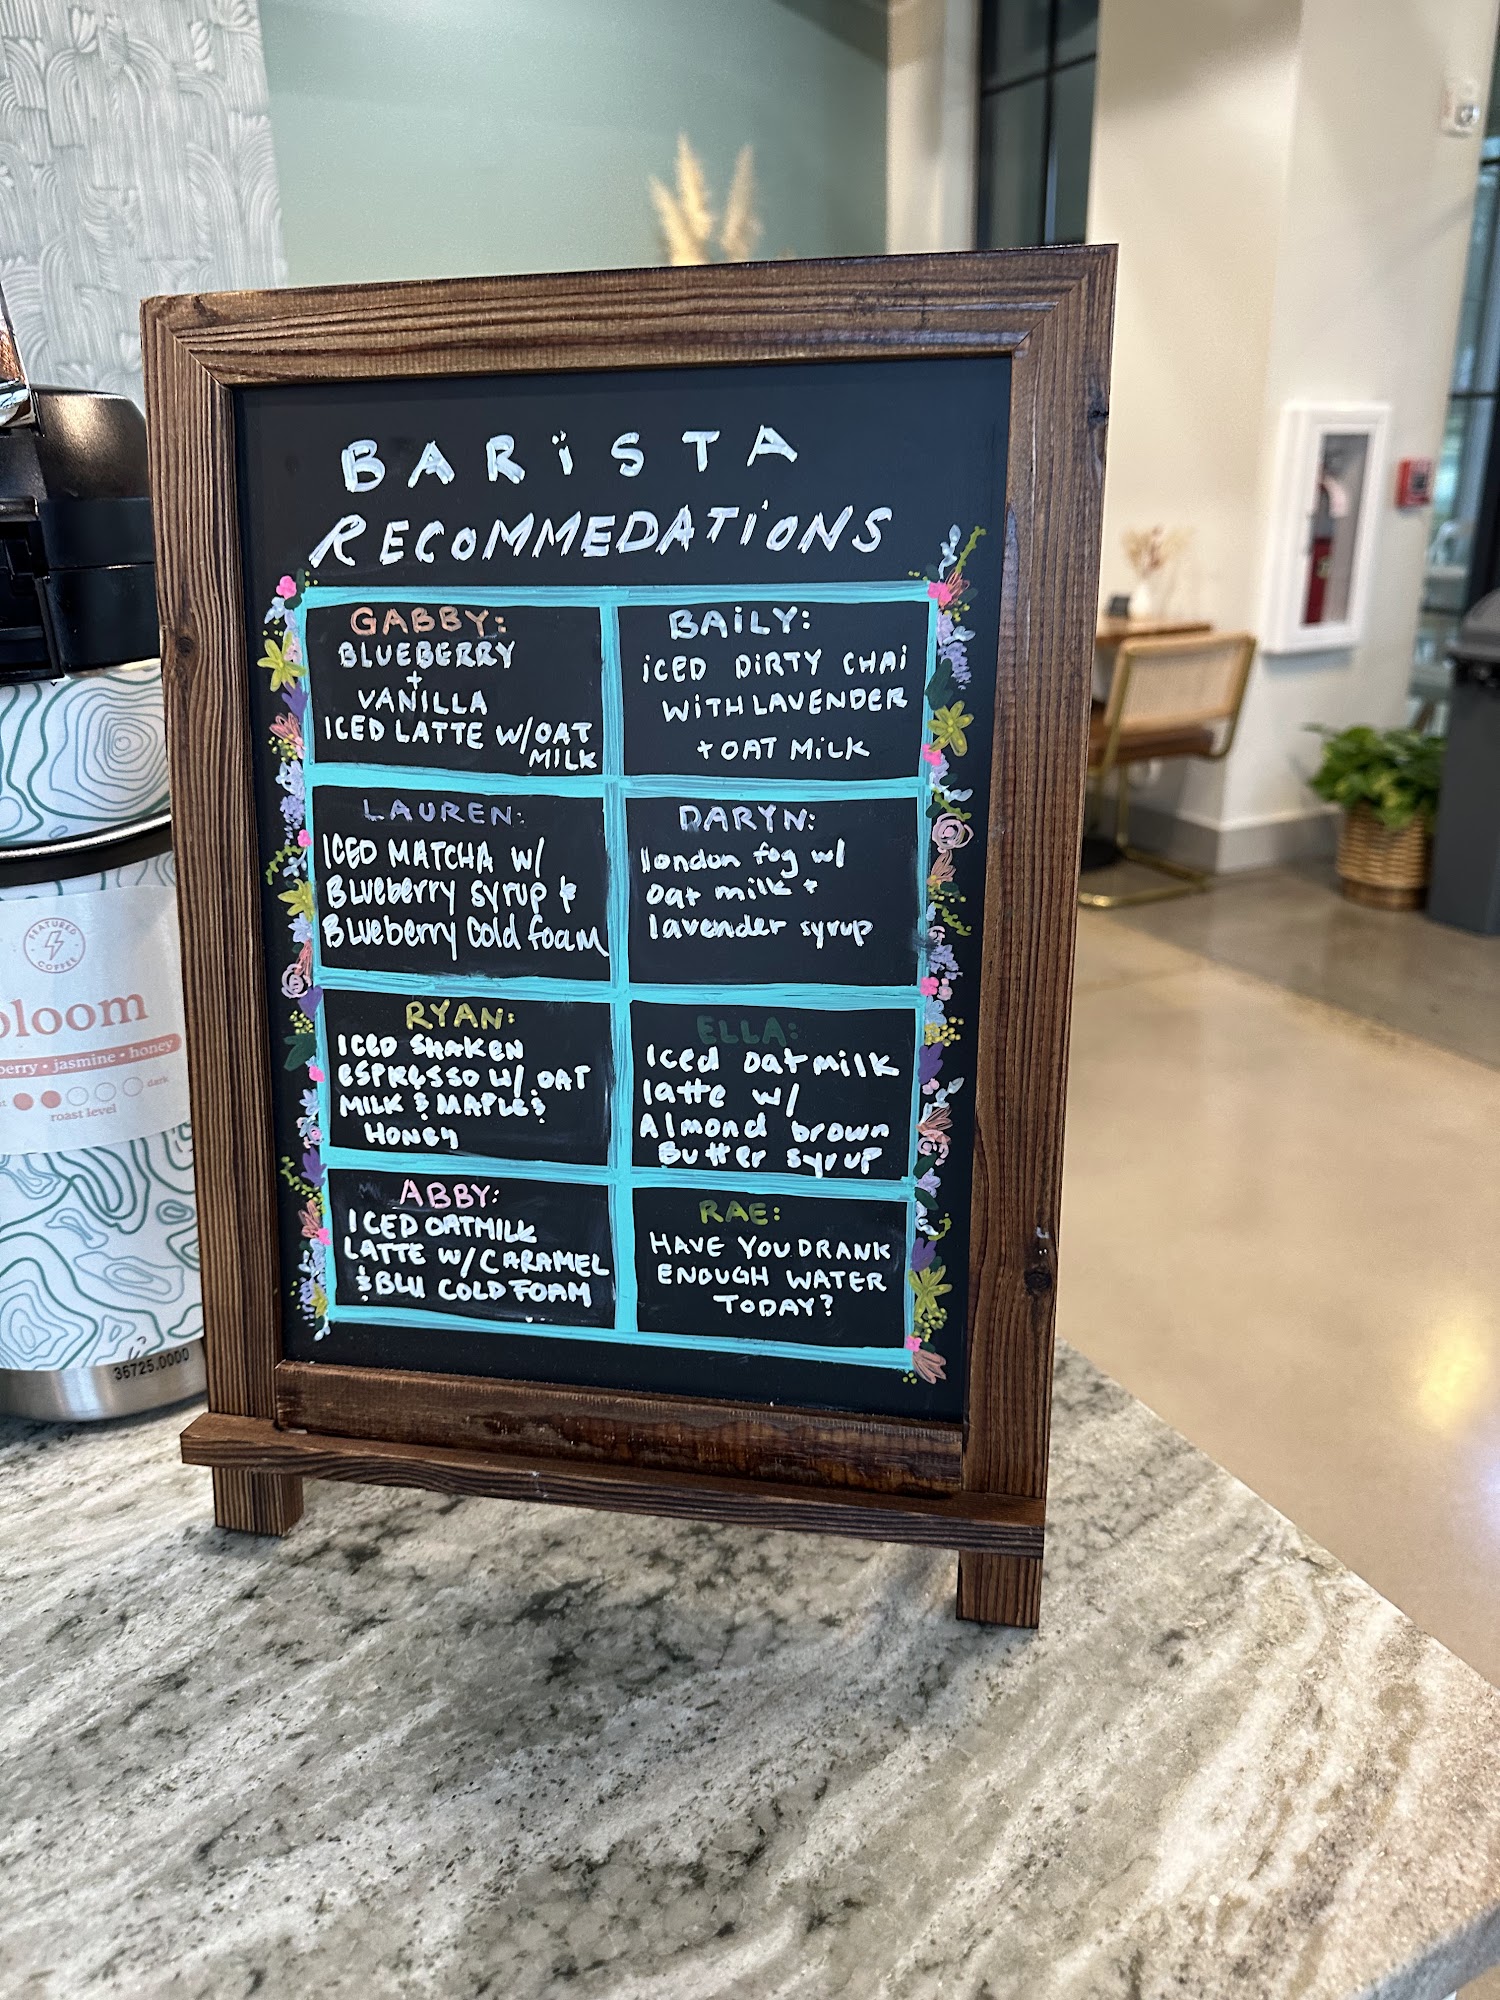 BARISTA
RECOMMEDATIONS
GABBY:
BLUEBERRY
+
VANILLA
ICED LATTE W/OAT
MILK
BAILY:
iCED DiRTY CHAi
WiTH LAVENDER
+ OAT MiLK
LAUREN:
ICED MATCHA W/
Blueberry syrup &
Blueberry Cold foam
DARYN:
london fog w/
oat milk +
lavender syrup
RYAN:
ICED SHAKEN
ESPRESSO W/ OAT
MILK & MAPLE &
HONEY
ELLA:
Iced oatmilk
latte w/
Almond brown
Butter syrup
ABBY:
ICED OATMILK
LATTE W/CARAMEL
& BLU COLD FOAM
RAE:
HAVE YOU DRANK
ENOUGH WATER
TODAY?
FEATURED
COFFEE
bloom
erry • jasmine • honey
dark
roast level
36725.0000